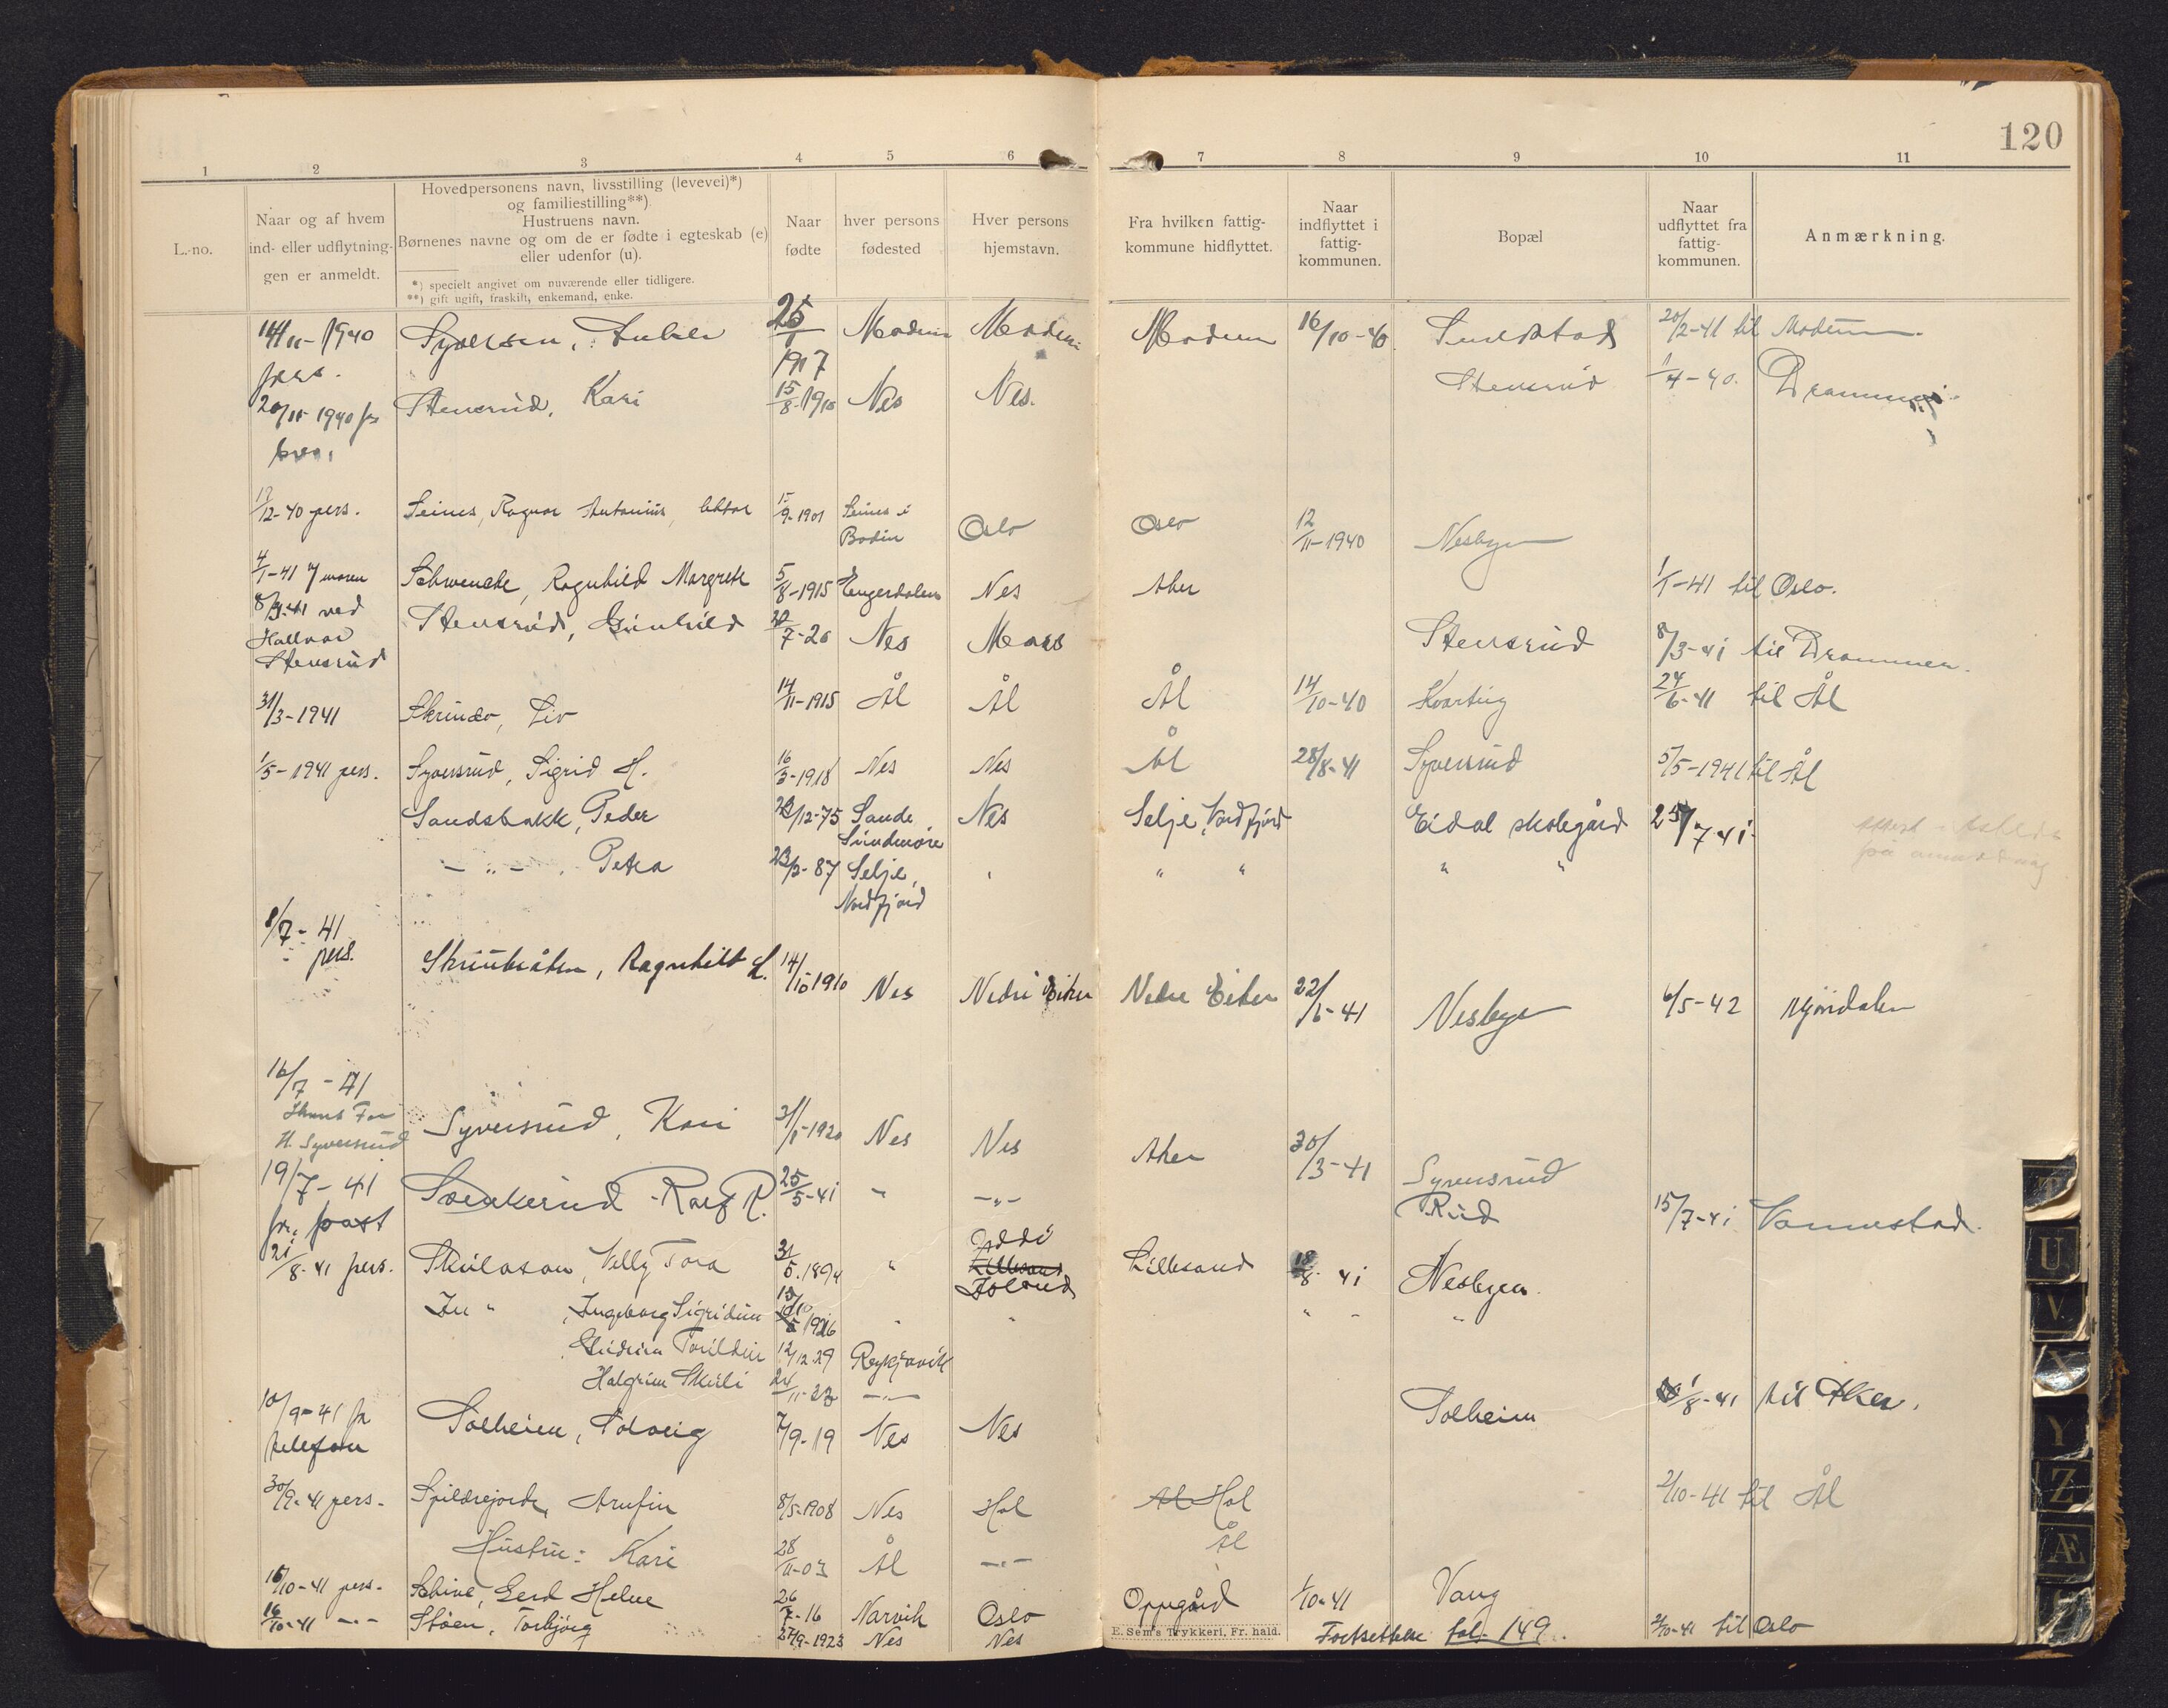 120
1 2 3 4 5 6 7 8 9 10 11
L.-no.
Naar og af hvem
ind- eller udflytnin-
gen er anmeldt.
Hovedpersonens navn, livsstilling (levevei)*)
og familiestilling**)
Hustruens navn.
Børnenes navne og om de er fødte i egteskab (e)
eller udenfor (u).
*) specielt angivet om nuværende eller tidligere.
**) gift ugift, fraskilt, enkemand, enke.
Naar
fødte
hver persons
fødested
Hver persons
hjemstavn.
Fra hvilken fattig-
kommune hidflyttet.
Naar
indflyttet i
fattig-
kommunen.
Bopæl
Naar
udflyttet fra
fattig-
kommunen.
Anmærkning.
14/11-1940 Syversen, 25/1 Modum Modum Modum 16/10-40 20/2-41 til Modum
pers. 1917
20/11-1940 pr Stensrud, Kari 15/8-1910 Nes Nes. Stensrud 1/4-40. Drammen
brev.
12/12-40 pers. Seines, Ragnar Antonius, lektor 15/9-1901 Seines i Oslo Oslo 12/11-1940 Nesbyen
Bodin
4/1-41 moren Schwencke, Ragnhild Margrete 5/8-1915 Engerdalen Nes Aker 1/1-41 til Oslo.
8/3-41 ved Stensrud, Gunhild 7-20 Nes Stensrud 8/3-41 til Drammen.
Hallvar
Stensrud
31/3-1941 Skrindo, Liv 14/11-1915 Ål Ål Ål 14/10-40 24/6-41 til Ål
1/5-1941 pers. Syversrud, Sigrid H. 16/3-1918 Nes Nes Ål 28/8-41 Syversrud 5/5-1941 til Ål
Sandsbakk, Peder 12-75 Sande Nes Selje, Nordfjord Eidal skolegård 25/7 41
Sundmøre
- " - Petra 87 Selje, " " " "
Nordfjord
8/7-41
pers. Skrubråten, Ragnhild H. 14/10 1910 Nes Nedre Eiker Nedre Eiker 22/5-41 Nesbyen 6/5-42 Mjøndalen
16/7-41
Far
H. Syversrud Syversrud, Kari 31/8-1920 Nes Nes Aker 30/3-41 Syversrud
19/7-41 Svenkerud Rolf R. 25/5-41 " -"- Rud 15/7-41
pr. post
21/8-41 pers. Skulason, Nelly Tora 31/5.1894 " Lillesand Lillesand 18/8 41 Nesbyen.
Island
" Ingeborg Sigridun 1926 " " " - "
Gudrun 12/12 29 Reykjavik
Halgrim Skuli 24/11-27 -"-
10/9-41 pr Solheim, Solveig 7/9-19 Nes Nes Solheim 1/8-41 til Aker.
telefon
30/9-41 pers. Spildrejorde, Arnfin 8/5-1908 Nes Hol Al Hol 2/10-41 til Ål
Hustru: Kari 28/11-03 Ål -"- Ål
15/10-41 pers. Gerd Helene 26/7-16 Narvik Oslo Oppegård 1/10-41 Vang
16/10-41 -"- Støen, Torbjørg 27/9-1923 Nes Nes 2/10-41 til Oslo
E. Sem's Trykkeri, Fr. hald.
Fortsettelse fol. 149.
U
V
X
Y
Z
Æ